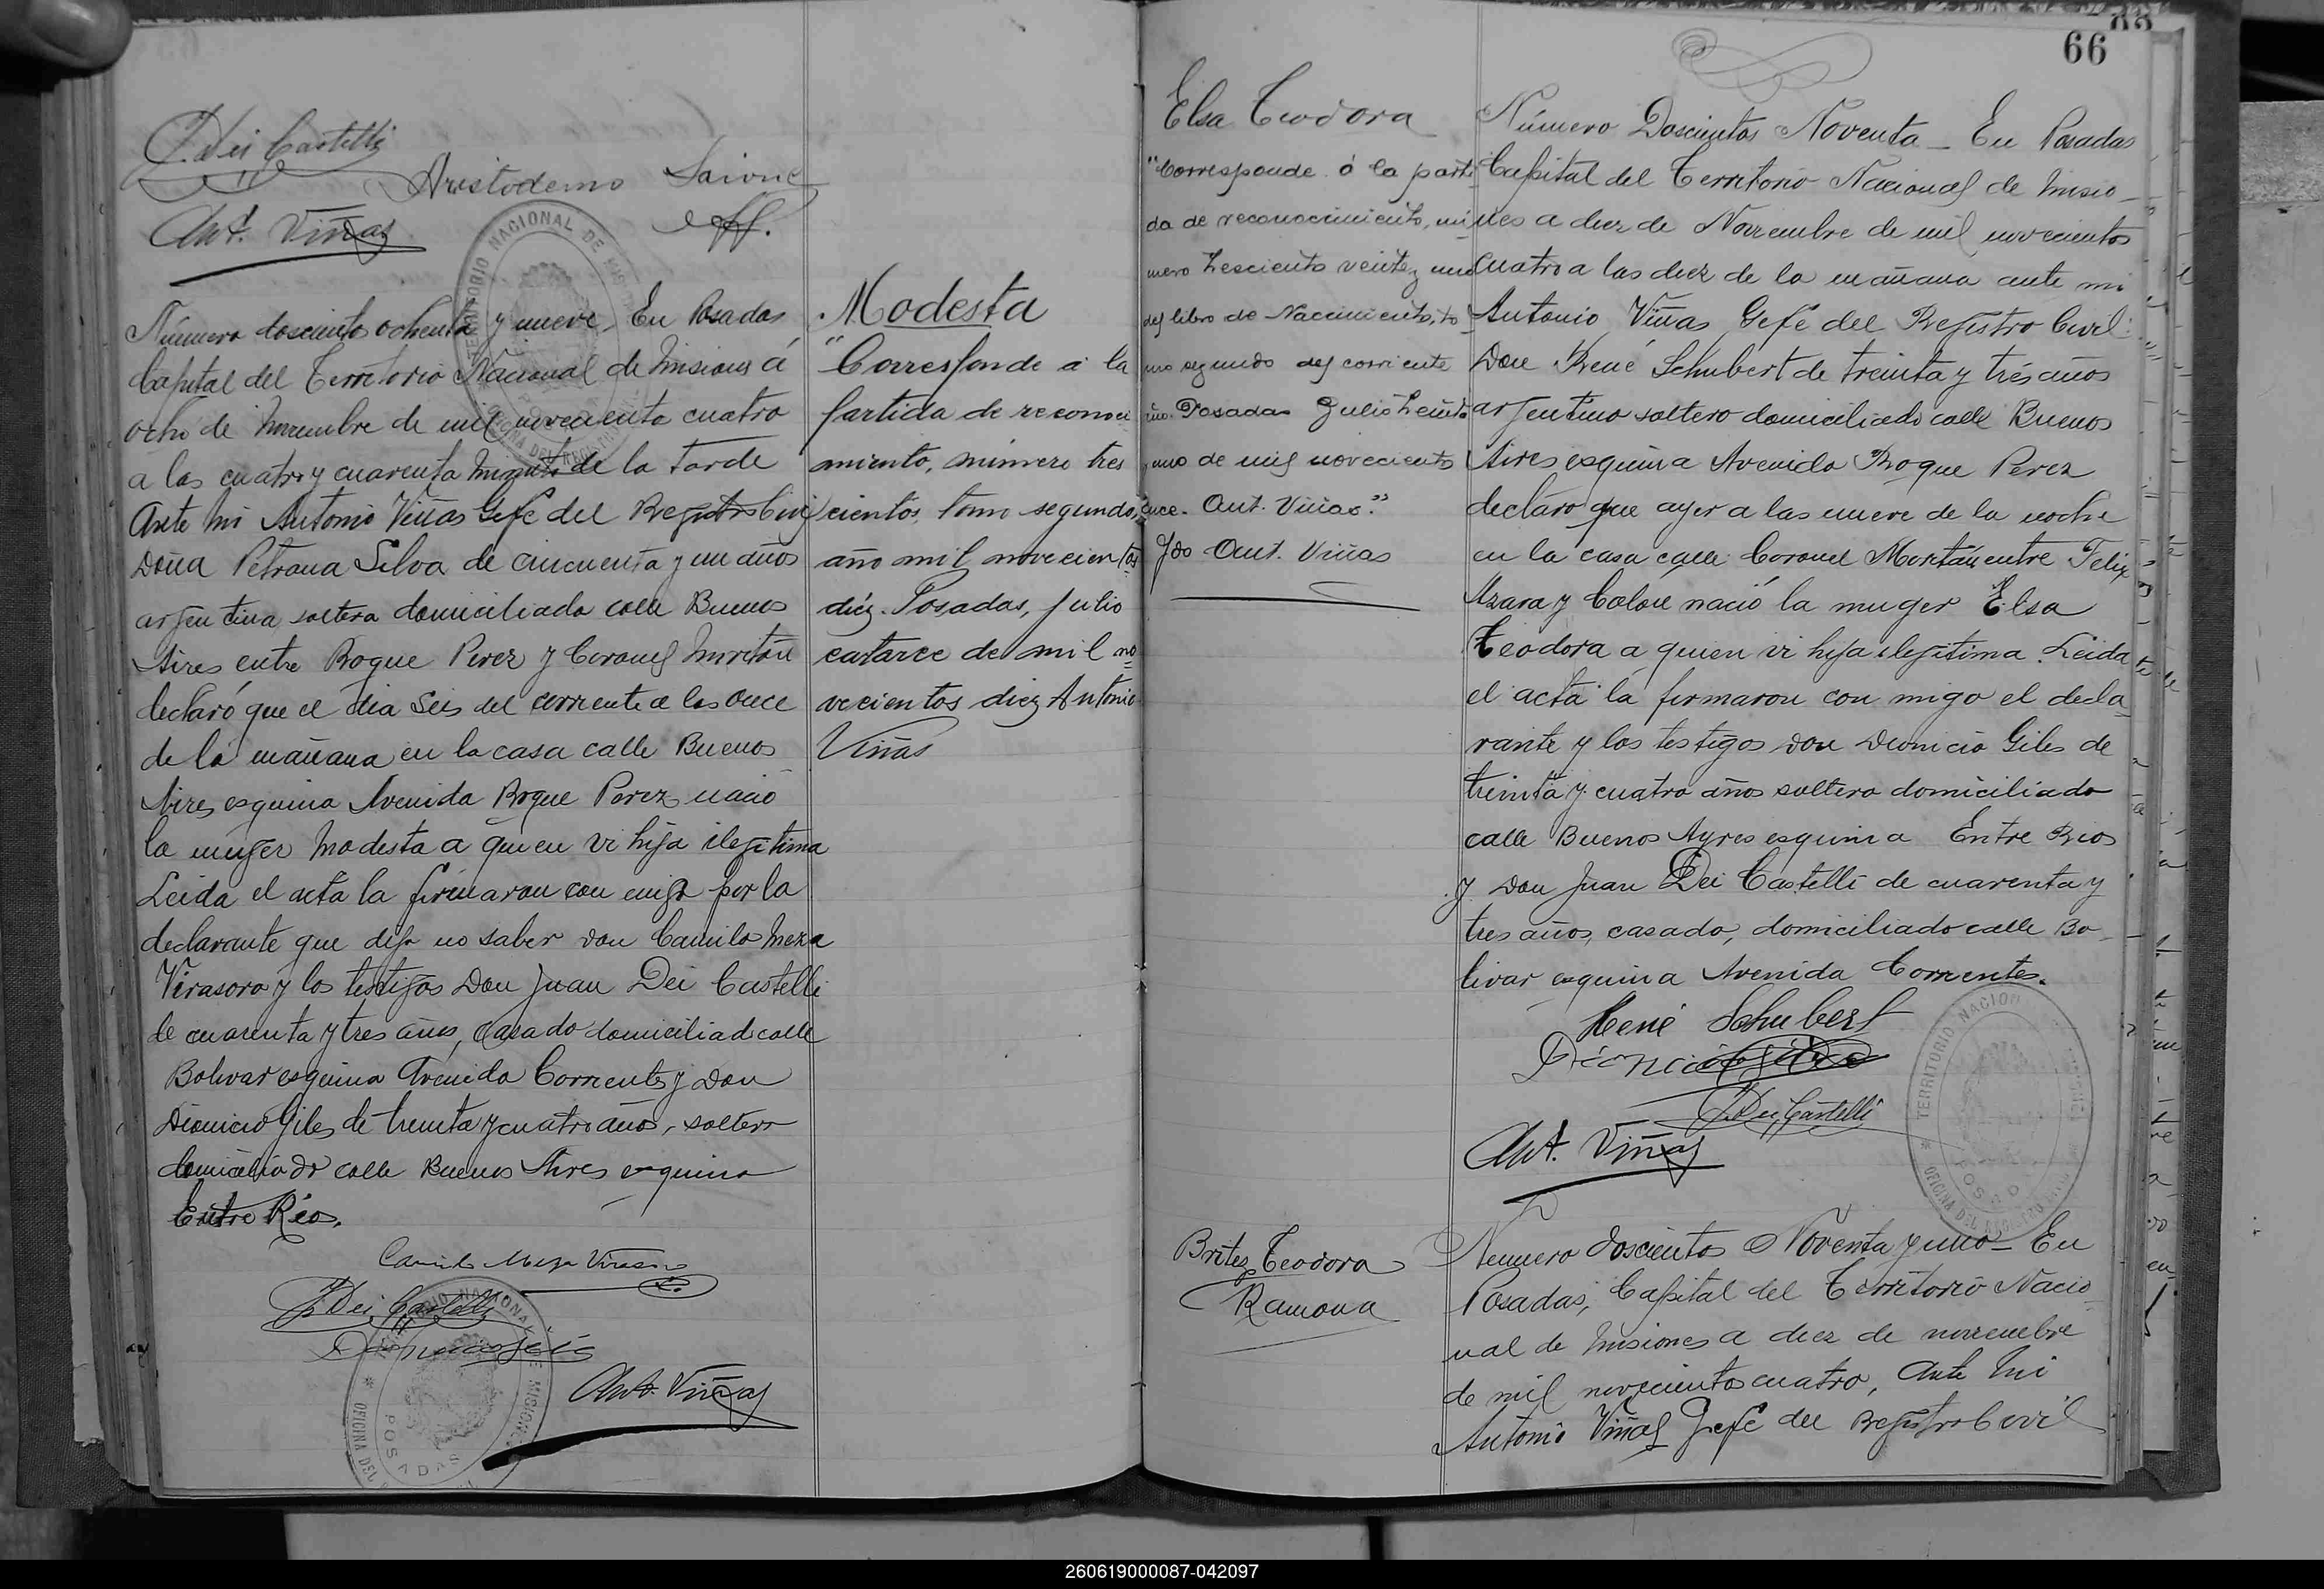 J. Dei Castelli
Aristodemo
Ant. Viñas
Número doscientos ochenta y nueve. En Posadas
Capital del Territorio Nacional de Misiones á
ocho de Noviembre de mil novecientos cuatro
a las cuatro y cuarenta minutos de la tarde
Ante mi Antonio Viñas Gefe del Registro Civil
Doña Petrona Silva de cincuenta y un años
argentina soltera domiciliada calle Buenos
Aires entre Roque Perez y Coronel Moritán
declaró que el dia seis del corriente a las once
de la mañana en la casa calle Buenos
Aires esquina Avenida Roque Perez nació
la muger Modesta a quien vi hija ilegitima
Leida el acta la firmaron con migo por la
declarante que dijo no saber don Camilo Meza
Virasoro y los testigos Don Juan Dei Castelli
de cuarenta y tres años, casado domiciliado calle
Bolivar esquina Avenida Corrientes y Don
Dionicio Giles de treinta y cuatro años, soltero
domiciliado calle Buenos Aires esquina
Entre Rios.
Camilo Meza Virasoro
J. Dei Castelli
Dionicio Giles
Ant. Viñas
Modesta
"Corresponde a la
partida de reconoci
miento, número tres
cientos, tomo segundo,
año mil novecientos
diéz. Posadas, julio
catorce de mil no
vecientos diez Antonio
Viñas
66
Elsa Teodora
"Corresponde á la parti
da de reconocimiento, nú
mero trescientos veinte y uno
del libro de Nacimientos, to
mo segundo del corriente
año. Posadas Julio treinta
y uno de mil novecientos
once. Ant. Viñas."
Fdo Ant. Viñas
Número Doscientos Noventa _ En Posadas
Capital del Territorio Nacional de Misio_
nes a diez de Noviembre de mil novecientos
cuatro a las diez de la mañana ante mi
Antonio Viñas Gefe del Registro Civil
Don René Schubert de treinta y trés años
argentino soltero domiciliado calle Buenos
Aires esquina Avenida Roque Perez
declaro que ayer a las nueve de la noche
en la casa calle Coronel Moritán entre Felix
Azara y Colon nació la muger Elsa
Teodora a quien vi hija ilegitima. Leida
el acta la firmaron con migo el decla_
rante y los testigos don Dionicio Giles de
treinta y cuatro años soltero domiciliado
calle Buenos Ayres esquina Entre Rios
y don Juan Dei Castelli de cuarenta y
tres años, casado, domiciliado calle Bo_
livar esquina Avenida Corrientes.
René Schubert
Dionicio Giles
J. Dei Castelli
Ant. Viñas
Brites, Teodora
Ramona
Numero doscientos Noventa y uno _ En
Posadas, Capital del Territorio Nacio_
nal de Misiones a diez de noviembre
de mil novecientos cuatro, Ante mi
Antonio Viñas Gefe del Registro Civil
260619000087-042097